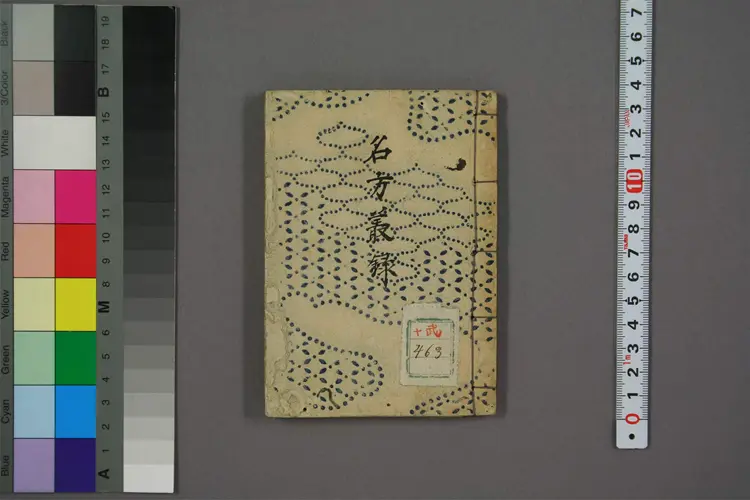 名方叢録
十弐
463
Black
3/Color
White
Magenta
Red
Yellow
Green
Cyan
Blue
19
18
17
B
15
14
13
12
11
10
9
8
M
6
5
4
3
2
1
A
7
6
5
4
3
2
1
10
9
8
7
6
5
4
3
2
1
0